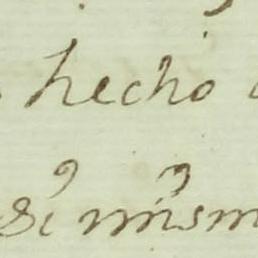 hecho
si mism